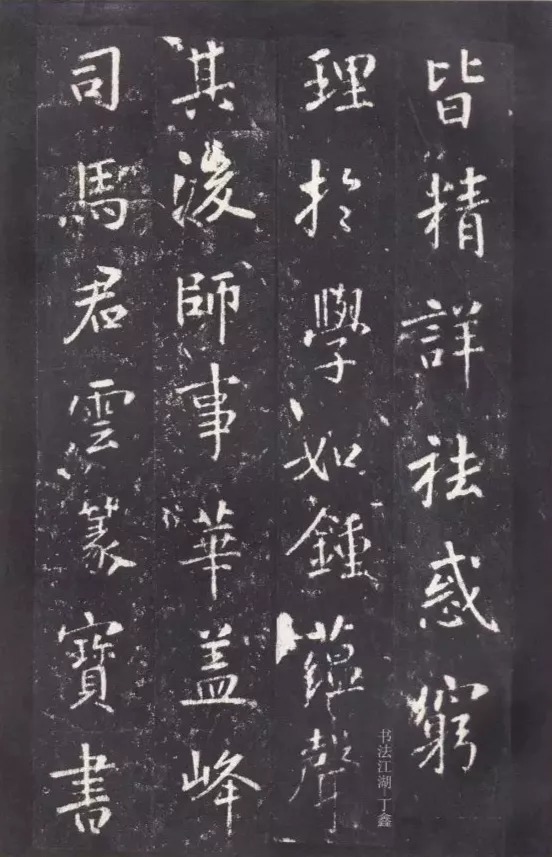 皆精詳祛惑窮
理於學如鍾蘊聲
其後師事華盖峰
司馬君雲篆寶書
书法江湖 丁鑫